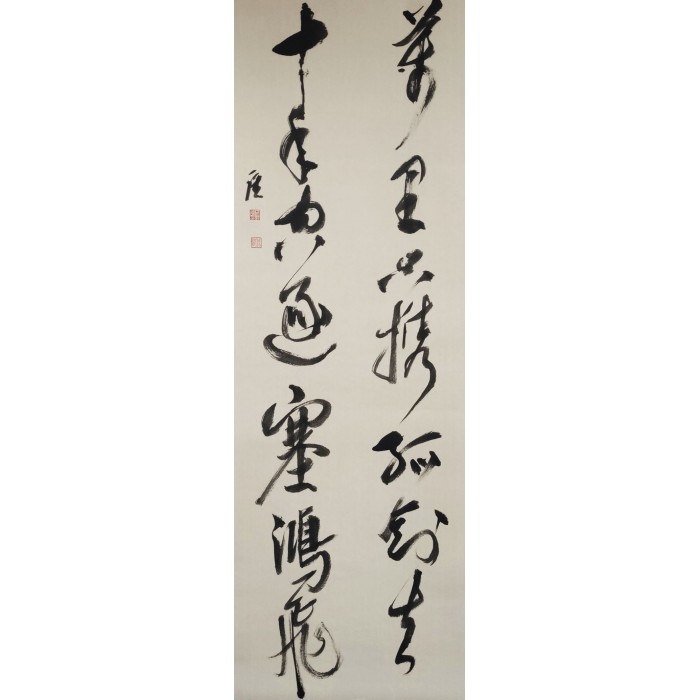 萬里只携孤劍去
十年空逐塞鴻飛